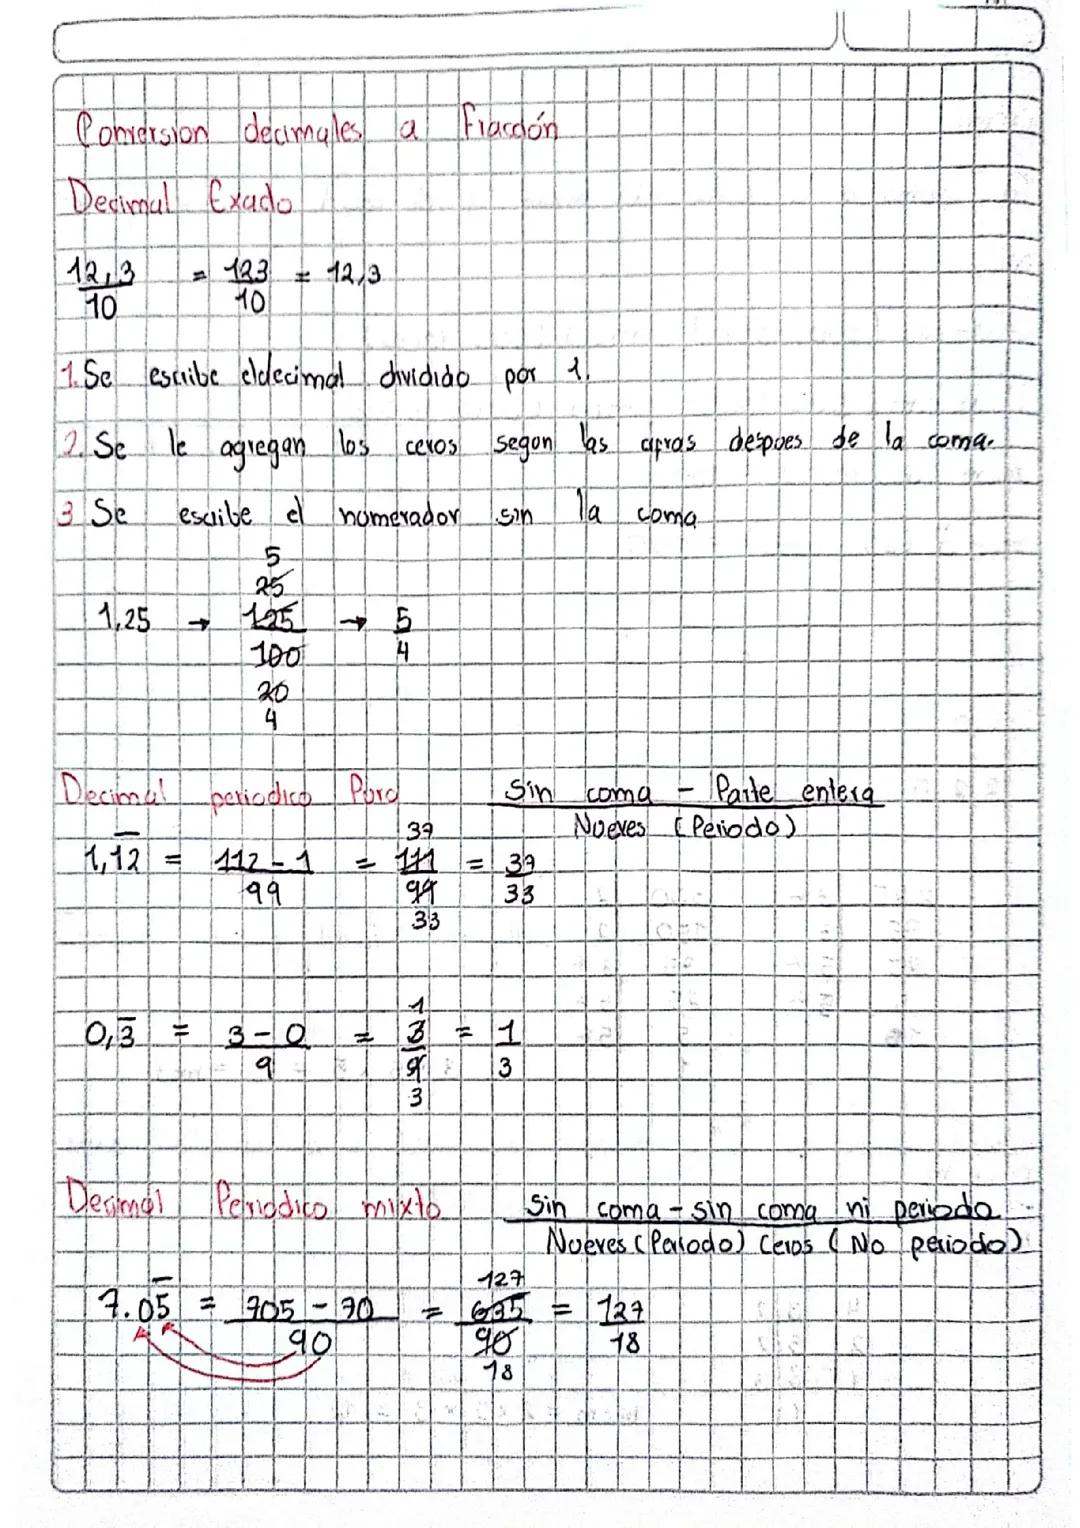 Conversion decimales a Fracción
Decimal Exacto
12,3/10 = 123/10 = 12,3
1. Se escribe el decimal dividido por 1.
2. Se le agregan los ceros segun las cifras despues de la coma.
3 Se escribe el numerador sin la coma
5
25
1,25 → 125/100 → 5/4
20
4
Decimal periodico Puro Sin coma - Parte entera
Nueves (Periodo)
37
1,1̅2̅ = 112-1/99 = 111/99 = 37/33
33
1
0,3̅ = 3-0/9 = 3/9 = 1/3
3
Decimal Periodico mixto Sin coma - sin coma ni periodo
Nueves (Periodo) Ceros (No periodo)
127
7.05̅ = 705-70/90 = 635/90 = 127/18
18